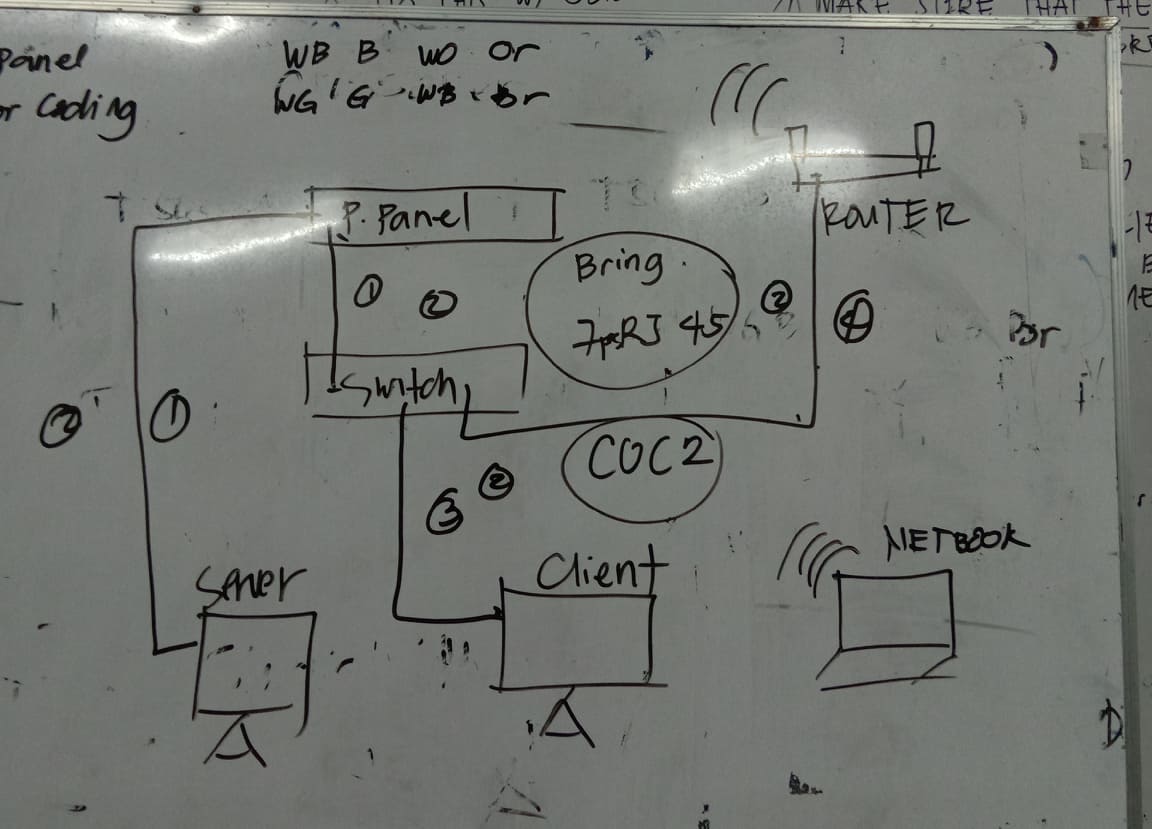 MAKE SURE THAT THE
Panel
or Coding
WB B WO Or
WG G WB Br
P. Panel
ROUTER
① ②
Bring
7pcs RJ 45
② ④
Br
Switch
② ①
COC2
③ ②
Server
Client
NETBOOK